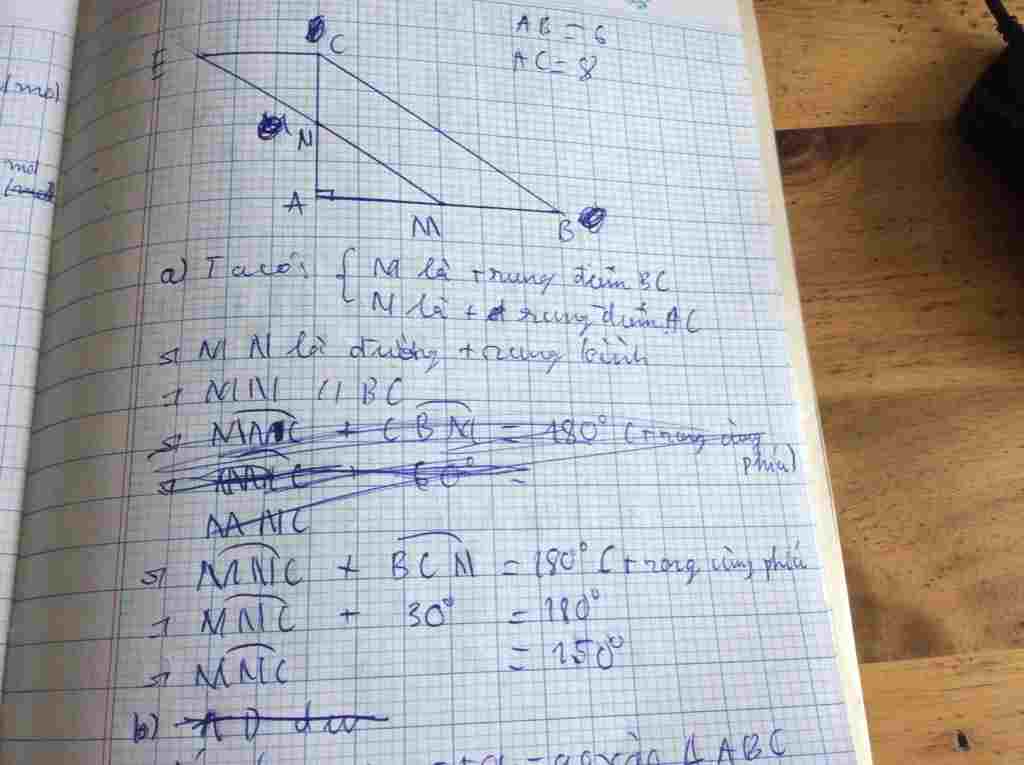 AB = 6
AC = 8
E
C
N
A
M
B
(mol
mol
a) Ta có: { M là trung điểm BC
N là trung điểm AC
=> MN là đường trung bình
=> MN // BC
CBN = 180° (trong cùng phía)
60° =
=> MNC + BCN = 180° (trong cùng phía
=> MNC + 30° = 180°
=> MNC = 150°
b) AD
ABC